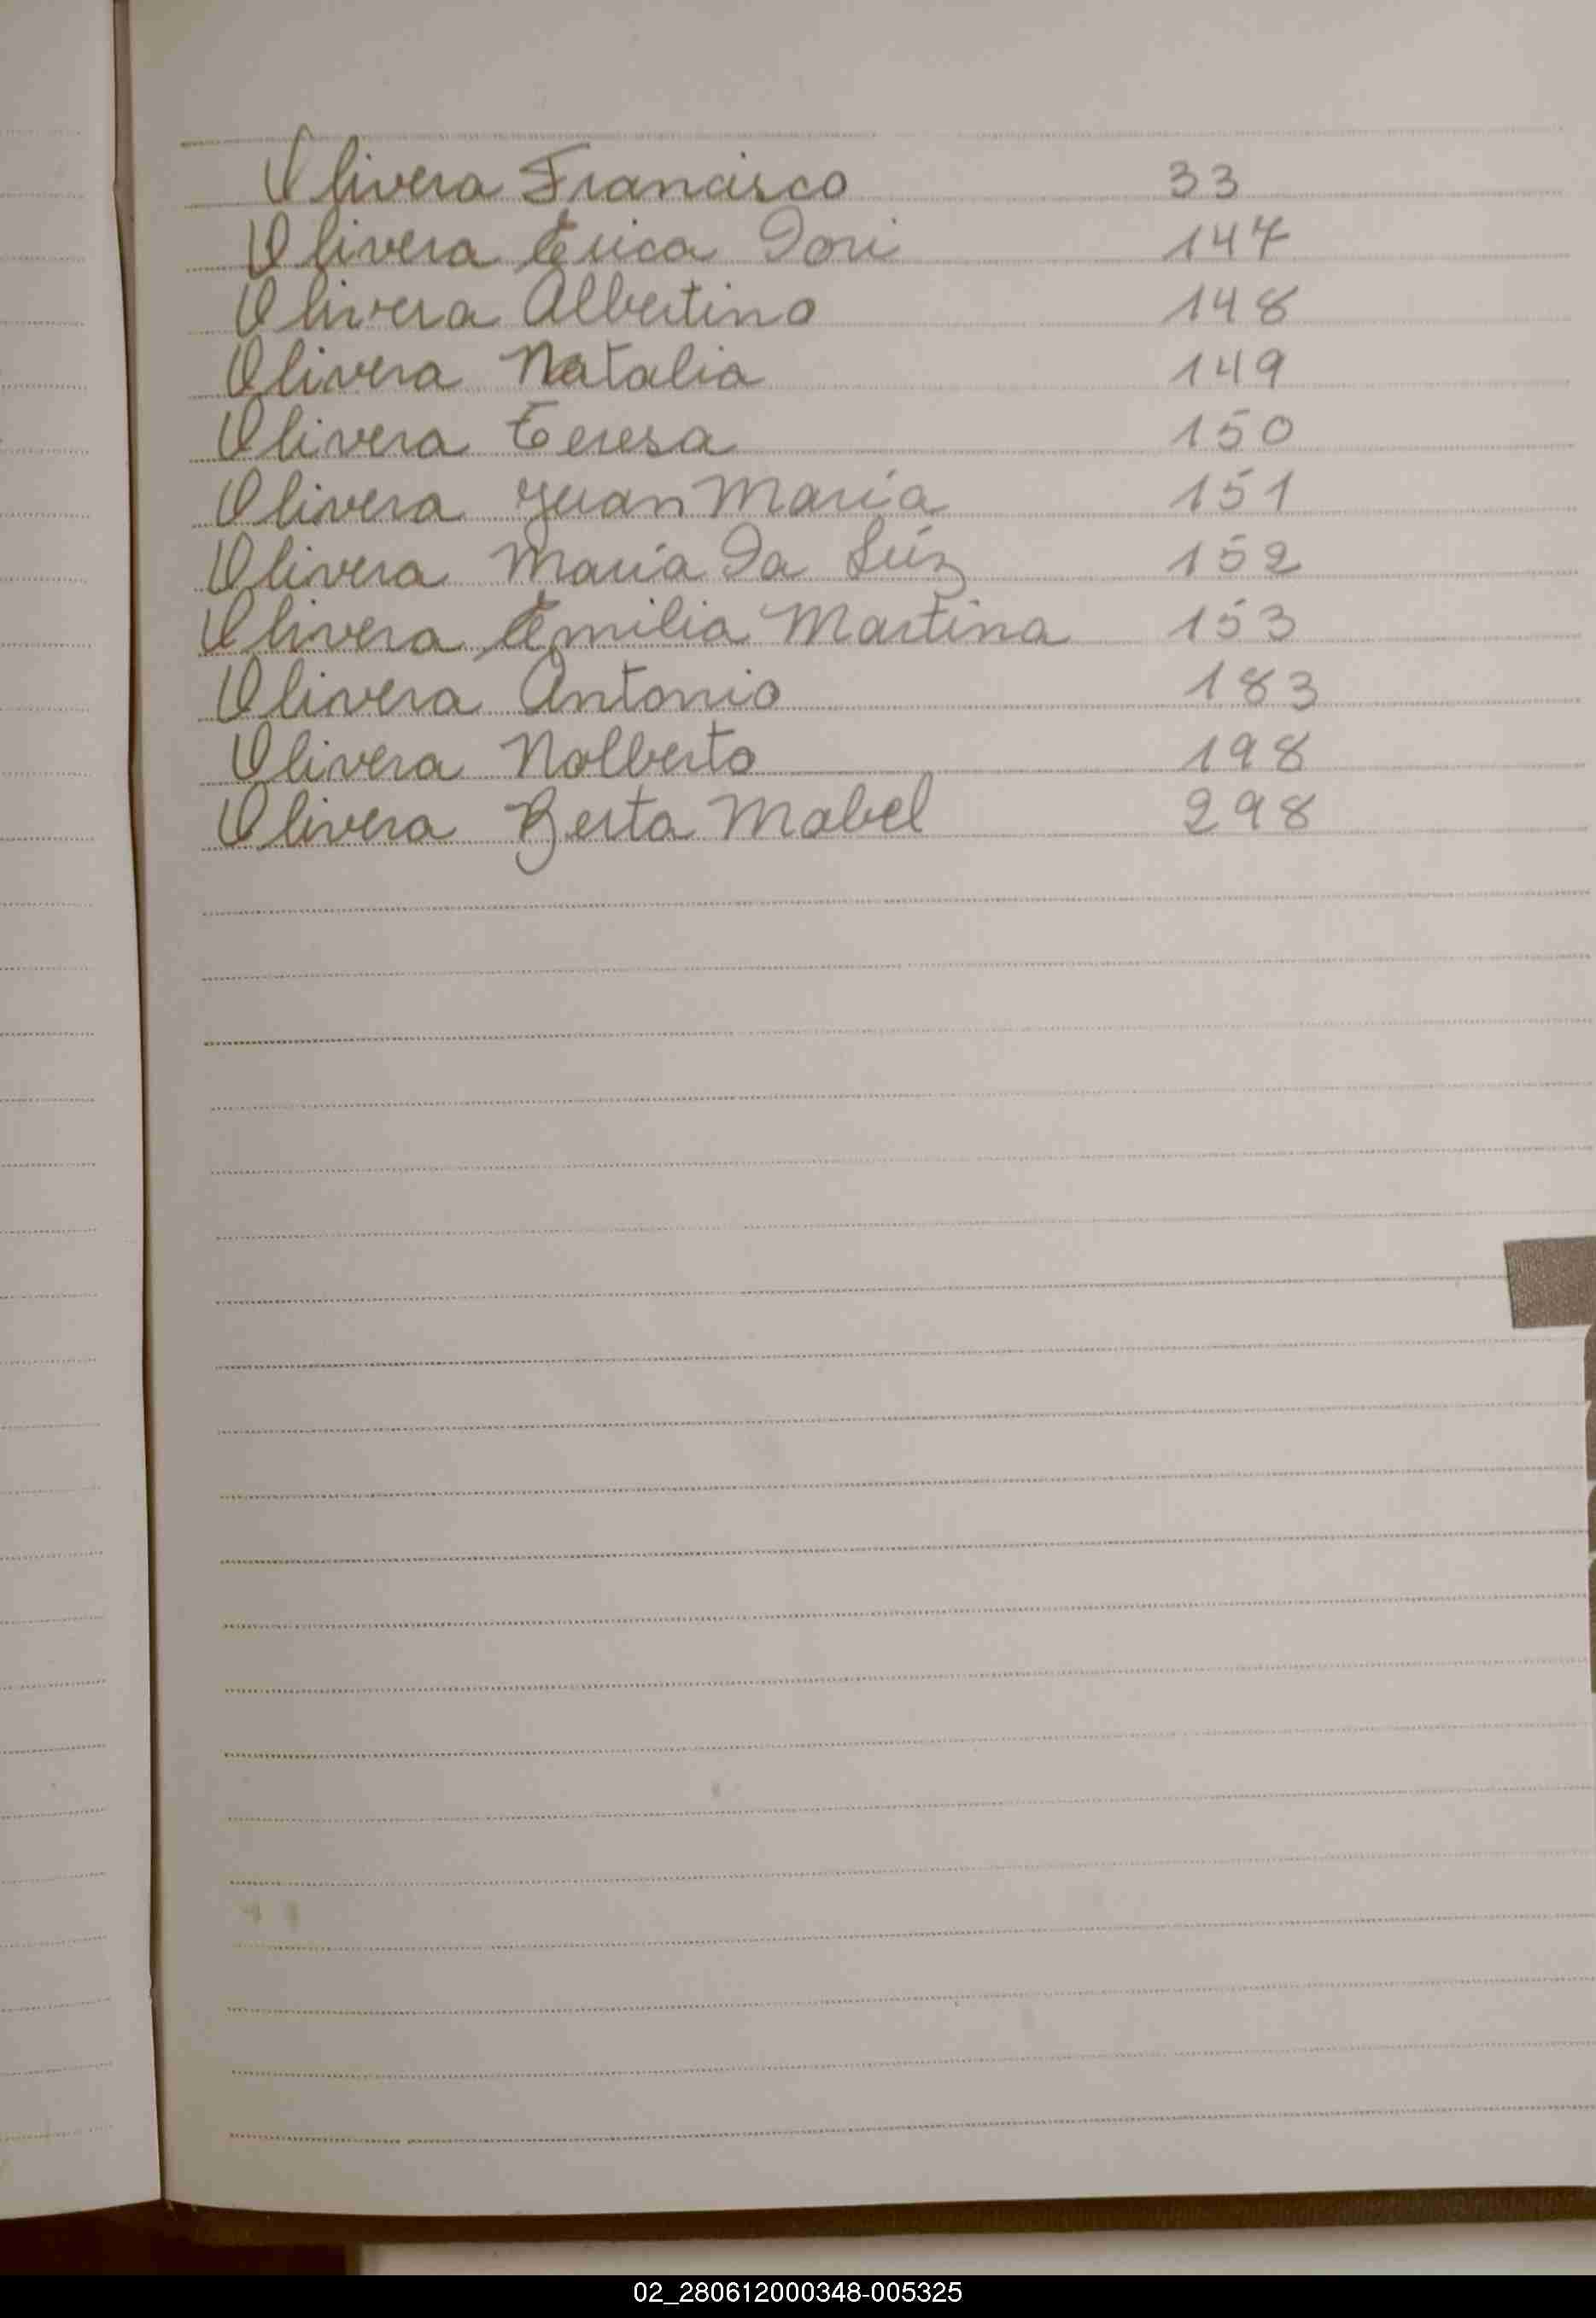 Olivera Francisco 33
Olivera Erica Dori 147
Olivera Albertina 148
Olivera Natalia 149
Olivera Teresa 150
Olivera Juan María 151
Olivera María Da Lúz 152
Olivera Emilia Martina 153
Olivera Antonio 183
Olivera Nolberto 198
Olivera Berta Mabel 298
02_280612000348-005325